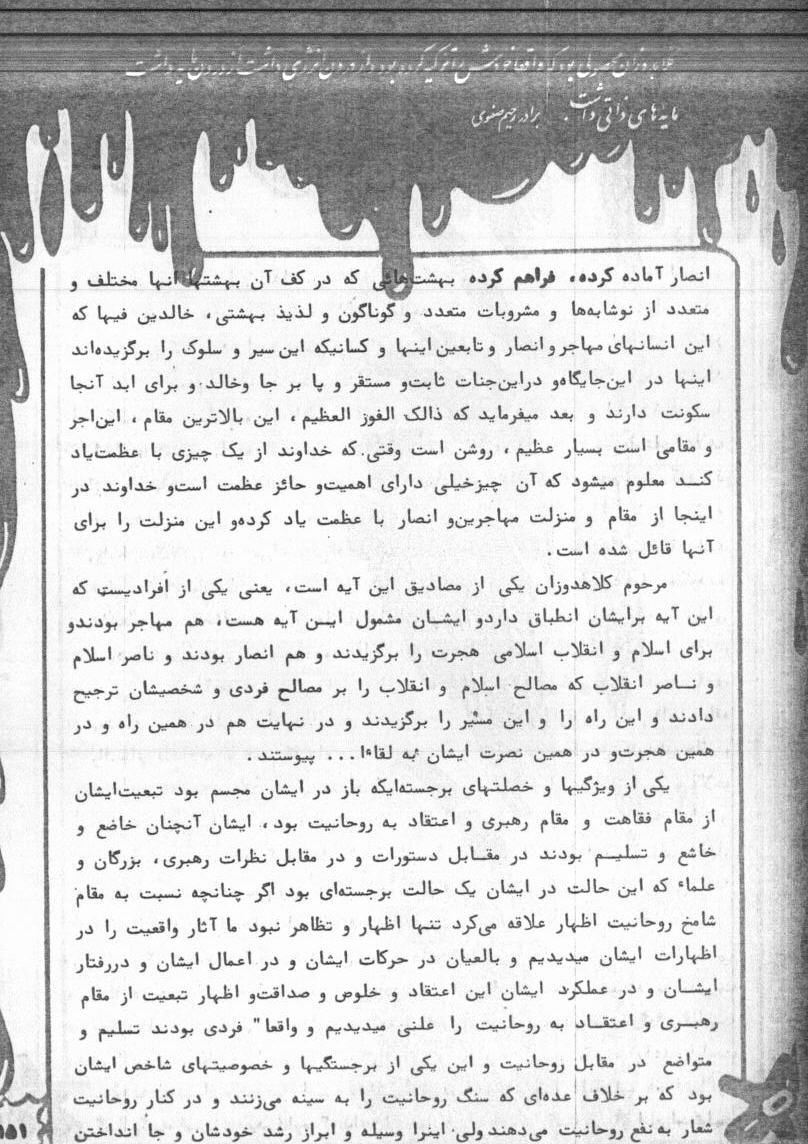 کلاهدوزان محصولی بود که واقعا خودش را تزکیه کرده بود و از درون انرژی داشت از درون مایه داشت
مایه‌های ذاتی داشت. برادر رحیم صفوی
انصار آماده کرده، فراهم کرده بهشت‌هائی که در کف آن بهشتها آنها مختلف و
متعدد از نوشابه‌ها و مشروبات متعدد و گوناگون و لذیذ بهشتی، خالدین فیها که
این انسانهای مهاجر و انصار و تابعین اینها و کسانیکه این سیر و سلوک را برگزیده‌اند
اینها در این‌جایگاه‌و دراین‌جنات ثابت‌و مستقر و پا بر جا وخالد و برای ابد آنجا
سکونت دارند و بعد میفرماید که ذالک الفوز العظیم، این بالاترین مقام، این‌اجر
و مقامی است بسیار عظیم، روشن است وقتی که خداوند از یک چیزی با عظمت‌یاد
کنـد معلوم میشود که آن چیزخیلی دارای اهمیت‌و حائز عظمت است‌و خداوند در
اینجا از مقام و منزلت مهاجرین‌و انصار با عظمت یاد کرده‌و این منزلت را برای
آنها قائل شده است.
مرحوم کلاهدوزان یکی از مصادیق این آیه است، یعنی یکی از افرادیست که
این آیه برایشان انطباق داردو ایشـان مشمول ایـن آیه هست، هم مهاجر بودندو
برای اسلام و انقلاب اسلامی هجرت را برگزیدند و هم انصار بودند و ناصر اسلام
و نـاصر انقلاب که مصالح اسلام و انقلاب را بر مصالح فردی و شخصیشان ترجیح
دادند و این راه را و این مسیر را برگزیدند و در نهایت هم در همین راه و در
همین هجرت‌و در همین نصرت ایشان به لقاءا... پیوستند.
یکی از ویژگیها و خصلتهای برجسته‌ایکه باز در ایشان مجسم بود تبعیت‌ایشان
از مقام فقاهت و مقام رهبری و اعتقاد به روحانیت بود، ایشان آنچنان خاضع و
خاشع و تسلیـم بودند در مقـابل دستورات و در مقابل نظرات رهبری، بزرگان و
علماء که این حالت در ایشان یک حالت برجسته‌ای بود اگر چنانچه نسبت به مقام
شامخ روحانیت اظهار علاقه می‌کرد تنها اظهار و تظاهر نبود ما آثار واقعیت را در
اظهارات ایشان میدیدیم و بالعیان در حرکات ایشان و در اعمال ایشان و دررفتار
ایشـان و در عملکرد ایشان این اعتقاد و خلوص و صداقت‌و اظهار تبعیت از مقام
رهبـری و اعتقـاد به روحانیت را علنی میدیدیم و واقعا" فردی بودند تسلیم و
متواضع در مقابل روحانیت و این یکی از برجستگیها و خصوصیتهای شاخص ایشان
بود که بر خلاف عده‌ای که سنگ روحانیت را به سینه می‌زنند و در کنار روحانیت
شعار به نفع روحانیت می‌دهند ولی اینرا وسیله و ابراز رشد خودشان و جا انداختن